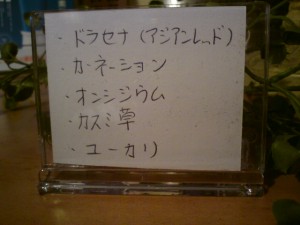 ・ドラセナ(アジアンレッド)
・カーネーション
・オンシジウム
・カスミ草
・ユーカリ